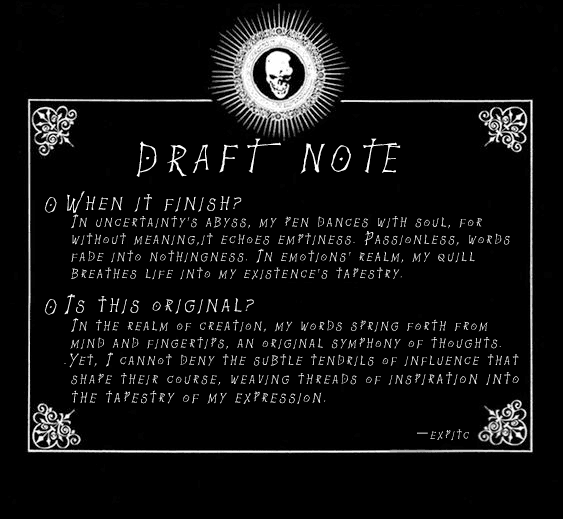 DRAFT NOTE
O WHEN IT FINISH?
IN UNCERTAINTY'S ABYSS, MY PEN DANCES WITH SOUL, FOR
WITHOUT MEANING,IT ECHOES EMPTINESS. PASSIONLESS, WORDS
FADE INTO NOTHINGNESS. IN EMOTIONS' REALM, MY QUILL
BREATHES LIFE INTO MY EXISTENCE'S TAPESTRY.
O IS THIS ORIGINAL?
IN THE REALM OF CREATION, MY WORDS SPRING FORTH FROM
MIND AND FINGERTIPS, AN ORIGINAL SYMPHONY OF THOUGHTS.
.YET, I CANNOT DENY THE SUBTLE TENDRILS OF INFLUENCE THAT
SHAPE THEIR COURSE, WEAVING THREADS OF INSPIRATION INTO
THE TAPESTRY OF MY EXPRESSION.
—EXPITC